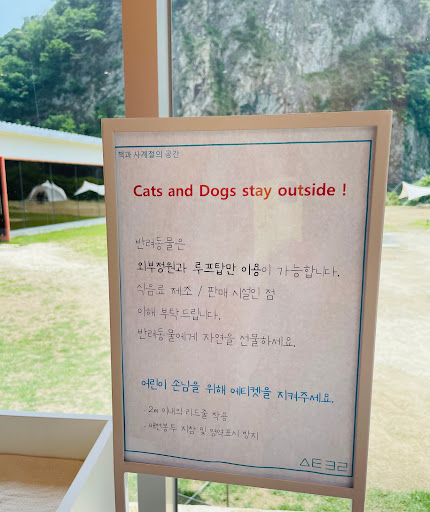 책과 사계절의 공간
Cats and Dogs stay outside !
반려동물은
외부정원과 루프탑만 이용이 가능합니다.
식음료 제조 / 판매 시설인 점
이해 부탁드립니다.
반려동물에게 자연을 선물하세요.
어린이 손님을 위해 에티켓을 지켜주세요.
· 2m 이내의 리드줄 착용
· 배변봉투 지참 및 영역표시 방지